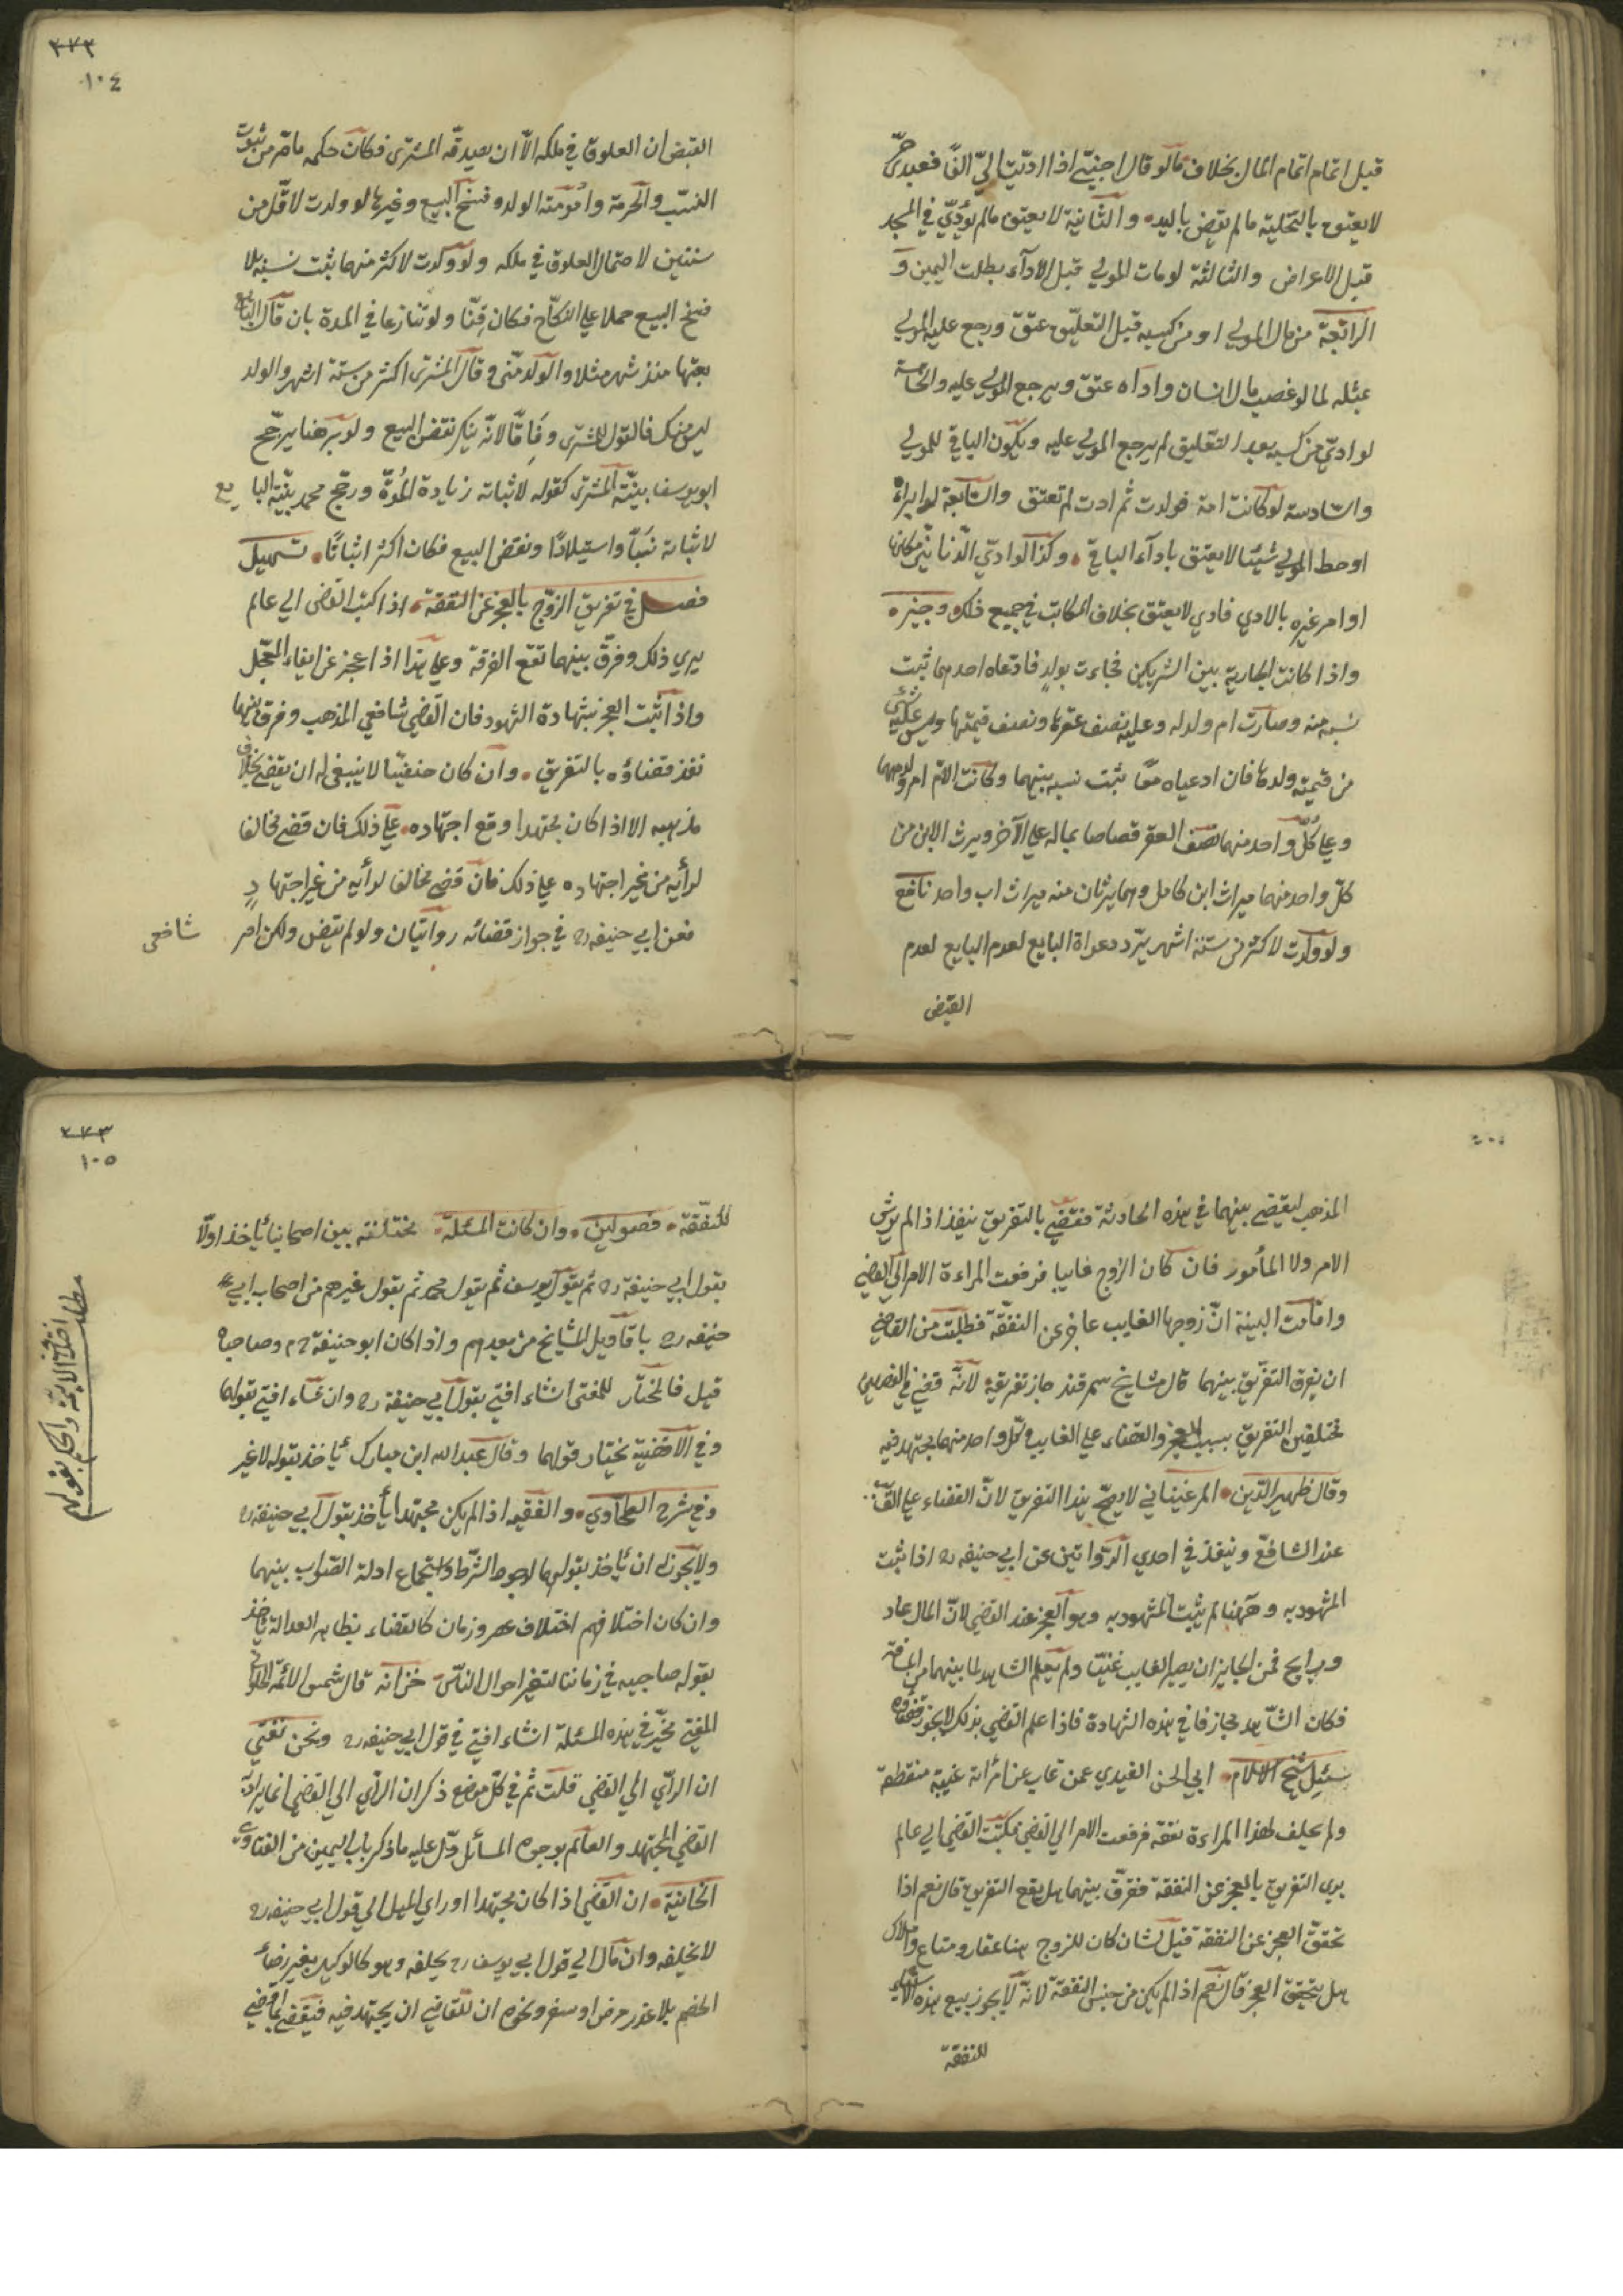 قبل اتمام اتمام المال بخلاف مالو قال اجنبي اذا ادّيت اليّ الفًا فعبدي حرّ
لا يعتق بالتخلية مالم يقبض باليد والثانية لا يعتق مالم يؤدّي في المجلس
قبل الاعراض والثالثة لو مات المولي قبل الادآء بطلت اليمين و
الرابعة من مال المولي او من كسبه قبل التعليق عتق ورجع عليه المولي
بمثله لما لو غصب مال انسان وادّاه عتق ويرجع المولي عليه والخامسة
لو ادّي من كسبه بعد التعليق لم يرجع المولي عليه ويكون الباقي للمولي
والسادسة لو كانت امة فولدت ثم ادت لم تعتق والسابعة لو ابراه
او حط المولي شيئا لا يعتق بادآء الباقي وكذا لو ادّي الدنانير مكانها
او امر غيره بالادي فادي لا يعتق بخلاف المكاتب في جميع ذلك وجيزه
واذا كانت الجارية بين الشريكين فجاءت بولد فادّعاه احدهما ثبت
نسبه منه وصارت ام ولد له وعليه نصف عقرها ونصف قيمتها وليس عليه شئ
من قيمته ولدها فان ادعياه معًا يثبت نسبه بينهما وكانت الامّ ام ولد لهما
وعلي كلّ واحد منهما نصف العقر قصاصا بماله علي الآخر ويرث الابن من
كلّ واحد منهما ميراث ابن كامل وهما يرثان منه ميراث اب واحد نافع
ولو ولدت لاكثر من ستة اشهر يردّ دعواة البايع لعدم البايع لعدم
القبض
٣٧٣
١٠٤
القبض ان العلوق في ملكه الّا ان يصدقه المشتري فكان حكمه مامّر من ثبوت
النسب والحرمة وامومته الولد وفسخ البيع وغيرها لو ولدت لاقّل من
سنتين لاحتمال العلوق في ملكه ولو ولدت لاكثر منهما يثبت نسبه بلا
فسخ البيع حملا علي النكاح فكان قِنّا ولو تنازعا في المدة بان قال البايع
بعتها منذ شهر مثلا والولد منّي وقال المشتري اكثر من ستة اشهر والولد
ليس منك فالقول للمشتري وفاقًا لانّه ينكر نقض البيع ولو برهنا يرجّح
ابو يوسف بيّنة المشتري كقوله لاثباته زيادة المُدّة ورجّح محمد بيّنة البايع
لاثباته نسَبًا واستيلادًا ونقض البيع فكان اكثر اثباتًا تسهيل
فصل في تفريق الزوّج بالعجز عن النفقة اذا كتب القاضي الي عالم
يري ذلك وفرّق بينهما تقع الفرقة وعلي هذا اذا عجز عن ايفاء المعجّل
واذا ثبت العجز بشهادة الشهود فان القاضي شافعي المذهب وفرق بينهما
نفذ قضاؤه بالتفريق وان كان حنفيّا لا ينبغي له ان يقضي بخلاف
مذهبه الا اذا كان مجتهدا وقع اجتهاده علي ذلك فان قضي مخالفا
لرأيه من غير اجتهاده علي ذلك فان قضي مخالفا لرأيه من غير اجتهادٍ
فعن ابي حنيفه ره في جواز قضائه روايتان ولو لم يقض ولكن امر شافعي
المذهب ليقضي بينهما في هذه الحادثة فقضي بالتفريق ينفذ اذا لم يرتش
الامر ولا المأمور فان كان الزوج غايبا فرفعت المراءة الامر الي القاضي
واقامت البينة انّ زوجها الغايب عاجز عن النفقّة فطلبت من القاضي
ان يفرق التفريق بينهما قال مشايخ سمرقند جاز تفريقه لانّه قضي في الفصلين
مختلفين التفريق بسبب العجز والقضاء علي الغايب وكلّ واحد منهما مجتهد فيه
وقال ظهير الدّين المرغيناني لا يصحّ هذا التفريق لانّ القضاء علي الغائب
عند الشافعّ وينفذ في احدي الروّاتين عن ابي حنيفه ره اذا ثبت
المشهود به وههنا لم يثبت المشهود به وهو العجز عند القاضي لانّ المال عاد
ورايح فمن الجايز ان يصير الغايب غنيّا ولم يعلم الشاهد لما بينهما من المسافة
فكان الشّاهد مجازفا في هذه الشهادة فاذا علم القاضي بذلك لا يجوز قضاؤه
سُئل شيخ الاسلام ابي الحسن الفيدي عمن غاب عن امرأته غيبة منقطعة
ولم يخلف لهذا المراءة نفقة فرفعت الامر الي القاضي فكتب القاضي الي عالم
يري التفريق بالعجز عن النفقة ففرّق بينهما هل يقع التفريق قال نعم اذا
تحققّ العجز عن النفقة قيل لشان كان للزوج هنا عقار ومتاع واملاك
هل يتحقق العجز قال نعم اذا لم يكن من جنس النفقة لانّه لا يجوز بيع هذه الاشياء
للنفقة
٣٧٣
١٠٥
للنفقّة فصولين وان كانت المسئلة مختلفته بين اصحابنا يأخذ اولّا
بقول ابي حنيفة ره ثم بقول ابو يوسف ثم بقول محمد ثم بقول غيرهم من اصحاب ابي
حنيفه ره باقاويل المشايخ من بعدهم واذا كان ابو حنيفة ره وصاحباه
قيل فالمختار للمفتي انشاء افتي بقول ابي حنيفة ره وان شاء افتي بقولهما
وفي الاقضية يختار قولهما وقال عبد الله ابن مبارك يأخذ بقوله لا غير
وفي شرح الطحاوي والفقيه اذا لم يكن مجتهدا يأخذ بقول ابي حنيفه ره
ولا يجوز له ان يأخذ بقولهما لوجود الشرّط واجتماع ادلة الصّواب بينهما
وان كان اختلافهم اختلاف عصر وزمان كالقضاء بظاهر العدالة يأخذ
بقوله صاحبيه في زماننا لتغير احوال النّاس خزانه قال شمس الائمّة الحلواني
المفتي مخيّر في هذه المسئلة انشاء افتي في قول ابي حنيفه ره ونحن نفتي
ان الرأي الي القاضي قلت ثم في كلّ موضع ذكر ان الرأي الي القاضي انما يراد به
القاضي المجتهد والعالم بوجوه المسائل دّل عليه ما ذكر باب اليمين من الفتاوي
الخانية ان القاضي اذا كان مجتهدا او راي الميل الي قول ابي حنيفه ره
لا نحلفه وان مال الي قول ابي يوسف ره يحلفه وهو كالوكيل بغير رضاء
الخصم بلا عذر مرض او سفر ونحوه ان للقاضي ان يجتهد فيه فيقضي بما افضي
مطلب اختلاف الائمة والحكم بقولهم